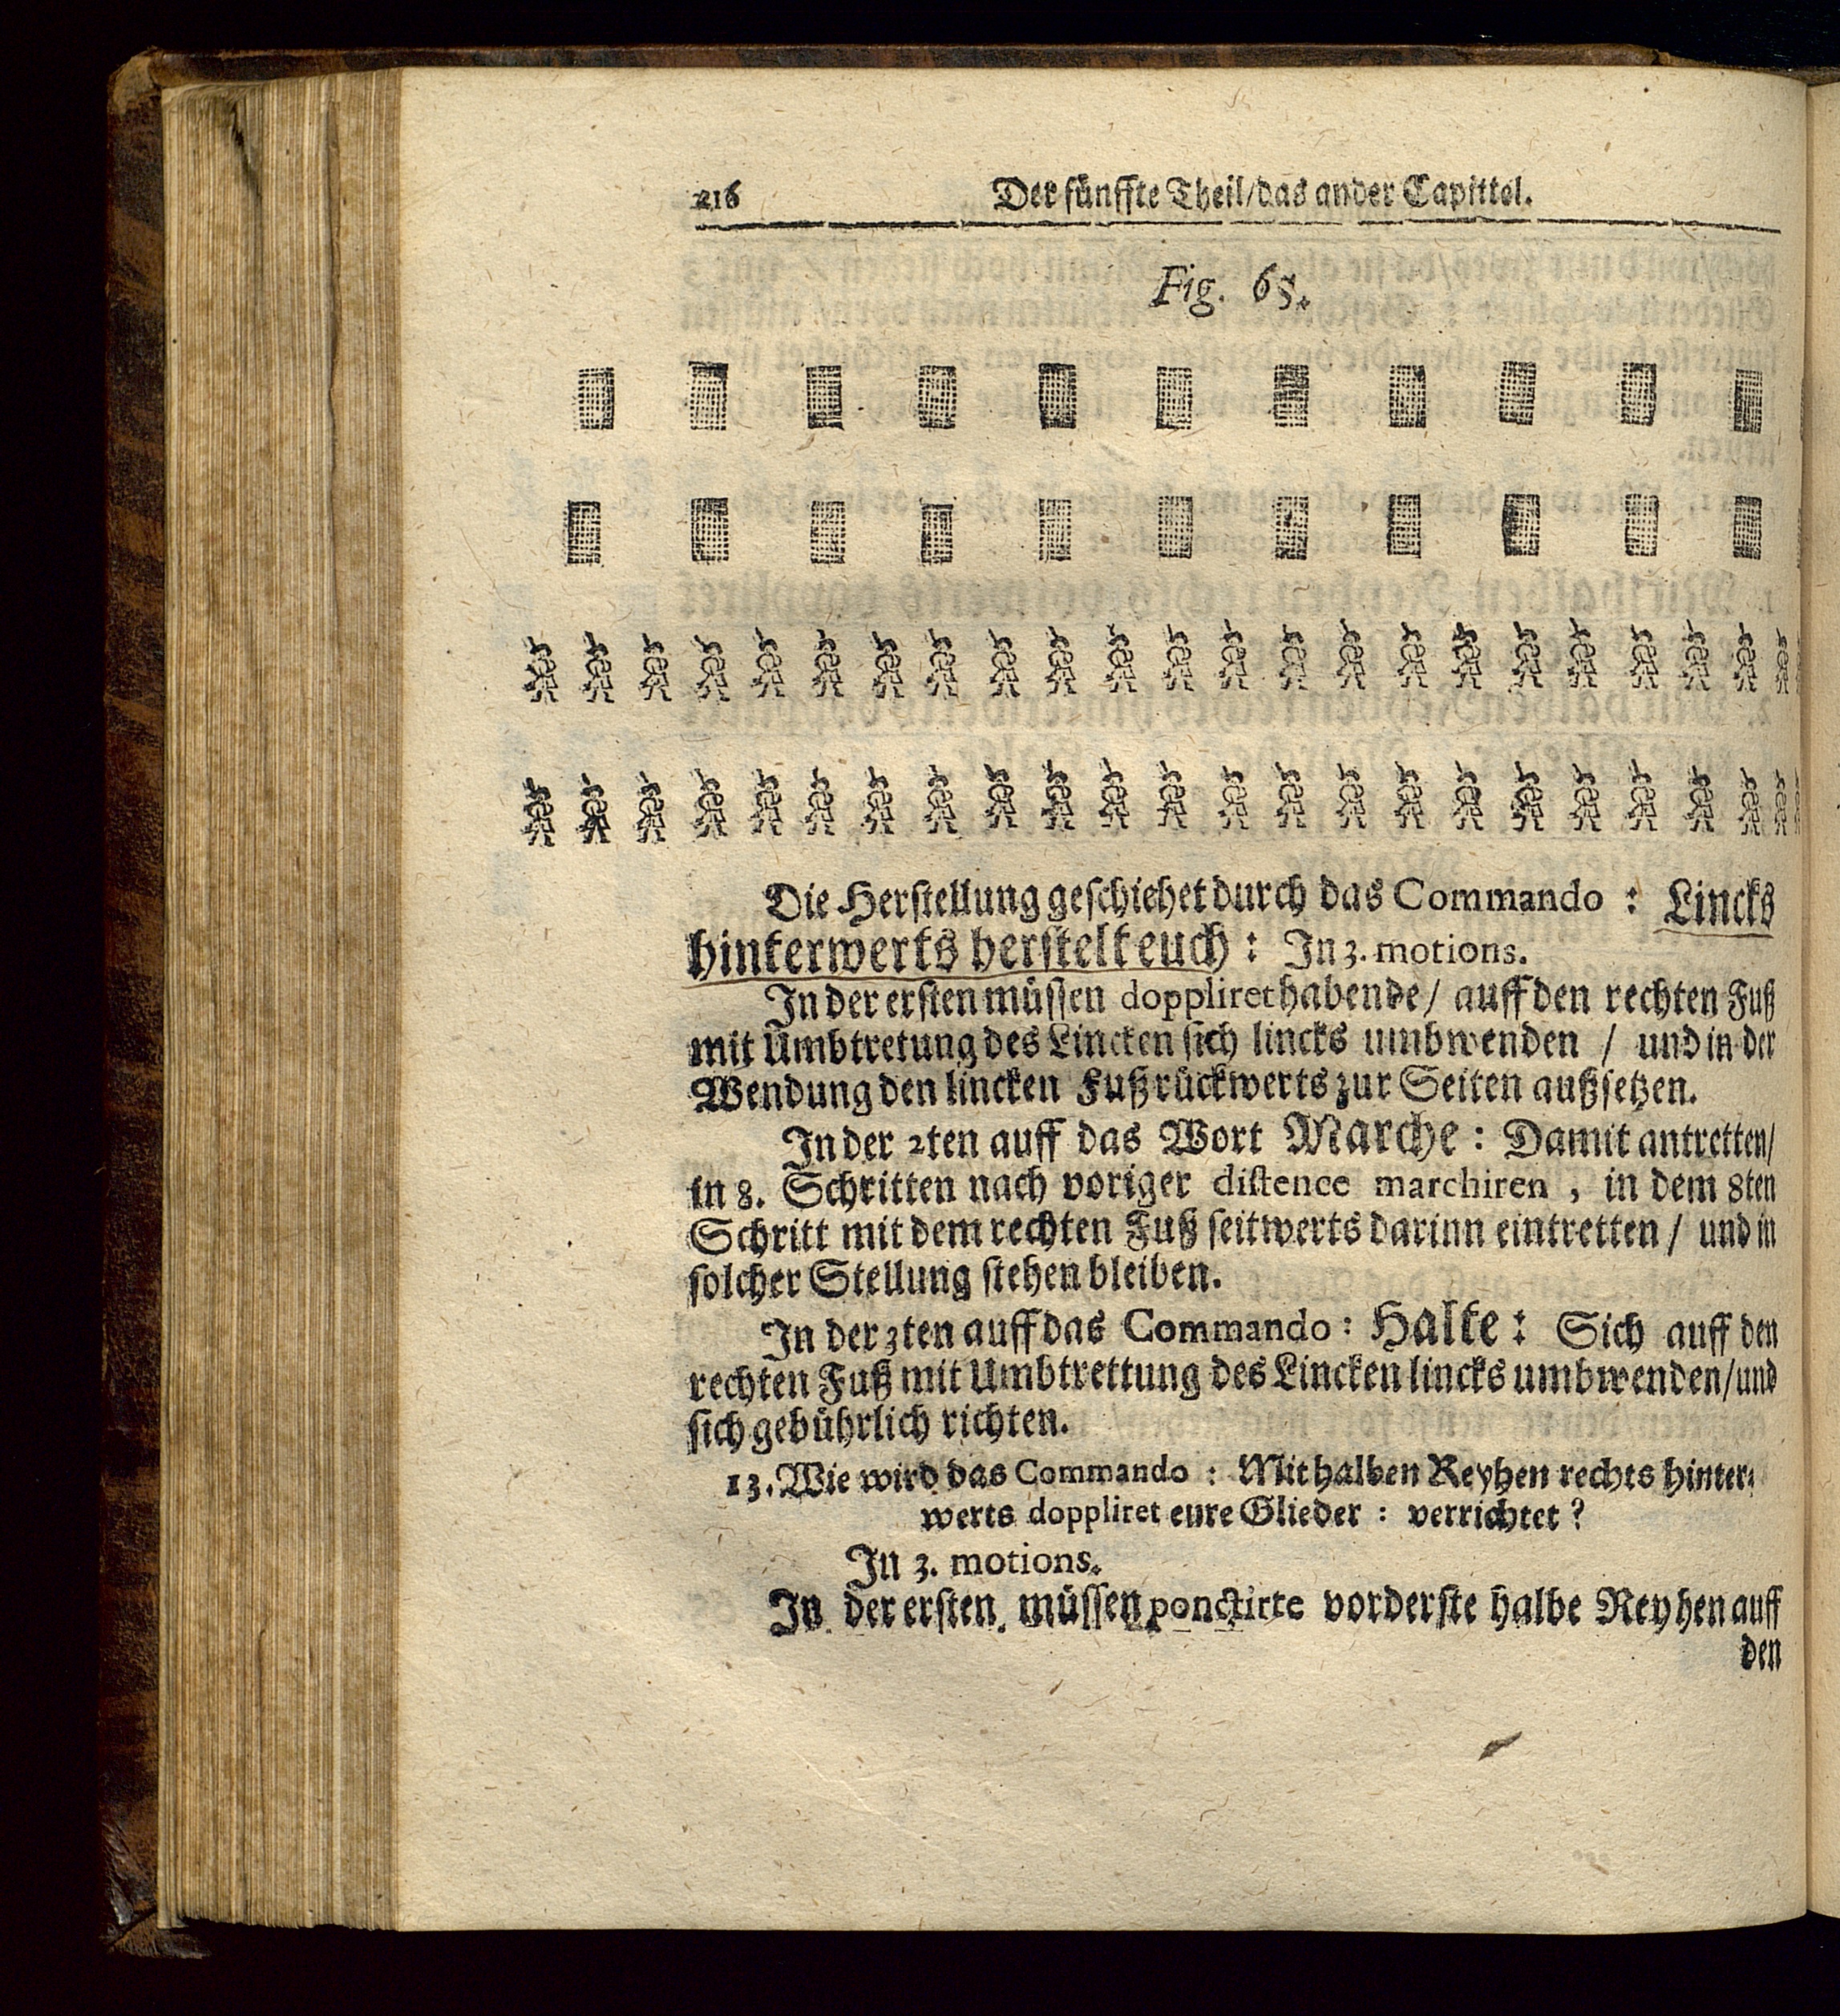 216 Der fünffte Theil/das ander Capittel.
Fig. 65.
Die Herstellung geschiehet durch das Commando : Lincks
hinterwerts herstelt euch : In 3. motions.
In der ersten müssen doppliret habende / auff den rechten Fuß
mit Umbtretung des Lincken sich lincks umbwenden / und in der
Wendung den lincken Fuß rückwerts zur Seiten außsetzen.
In der 2ten auff das Wort Marche : Damit antretten/
in 8. Schritten nach voriger distence marchiren , in dem 8ten
Schritt mit dem rechten Fuß seitwerts darinn eintretten / und in
solcher Stellung stehen bleiben.
In der 3ten auff das Commando : Halte : Sich auff den
rechten Fuß mit Umbtrettung des Lincken lincks umbwenden/und
sich gebührlich richten.
13. Wie wird das Commando : Mit halben Reyhen rechts hinter-
werts doppliret eure Glieder : verrichtet ?
In 3. motions.
In der ersten müssen ponctirte vorderste halbe Reyhen auff
den